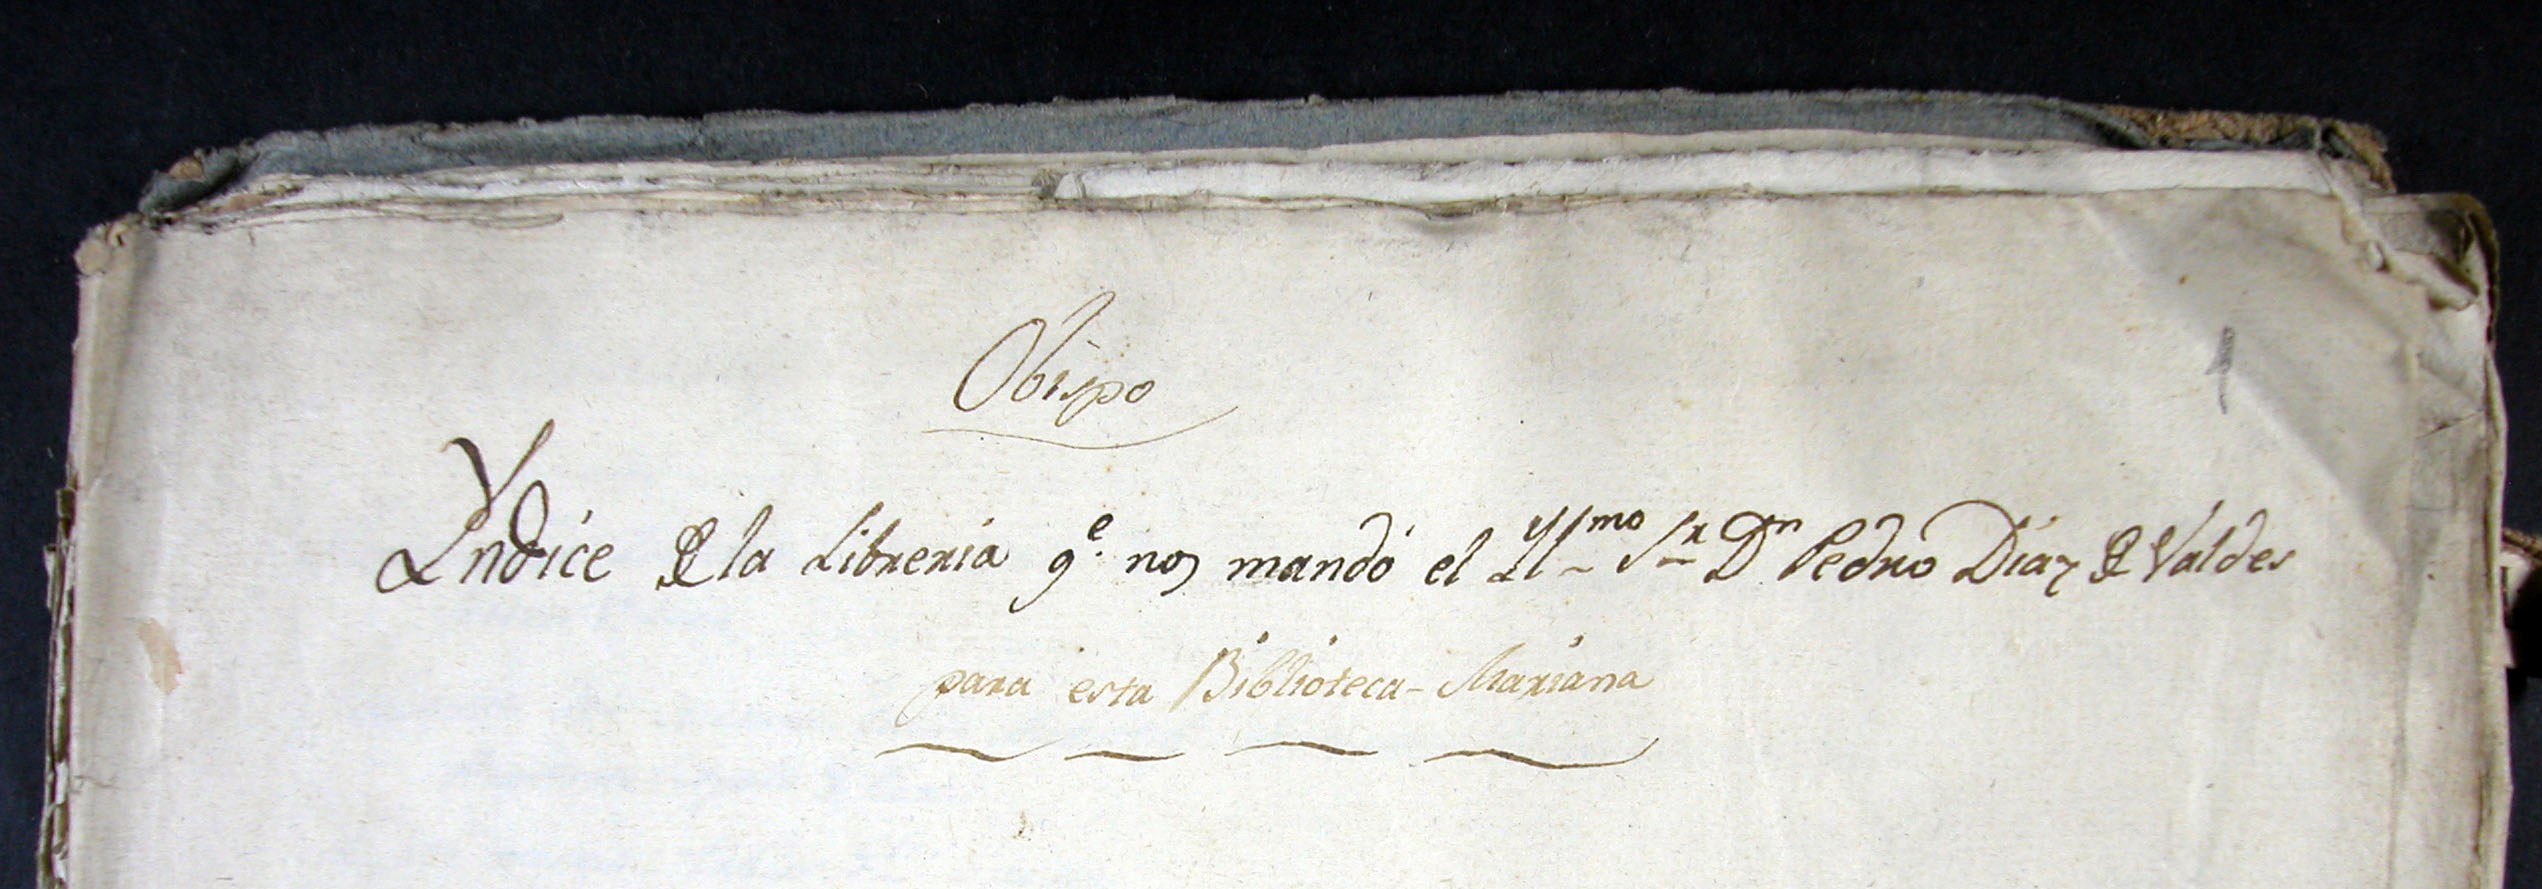 Obispo
1
Yndice de la Libreria q.e nos mandó el Yl.mo S.r D.n Pedro Diaz de Valdes
para esta Biblioteca-Mariana